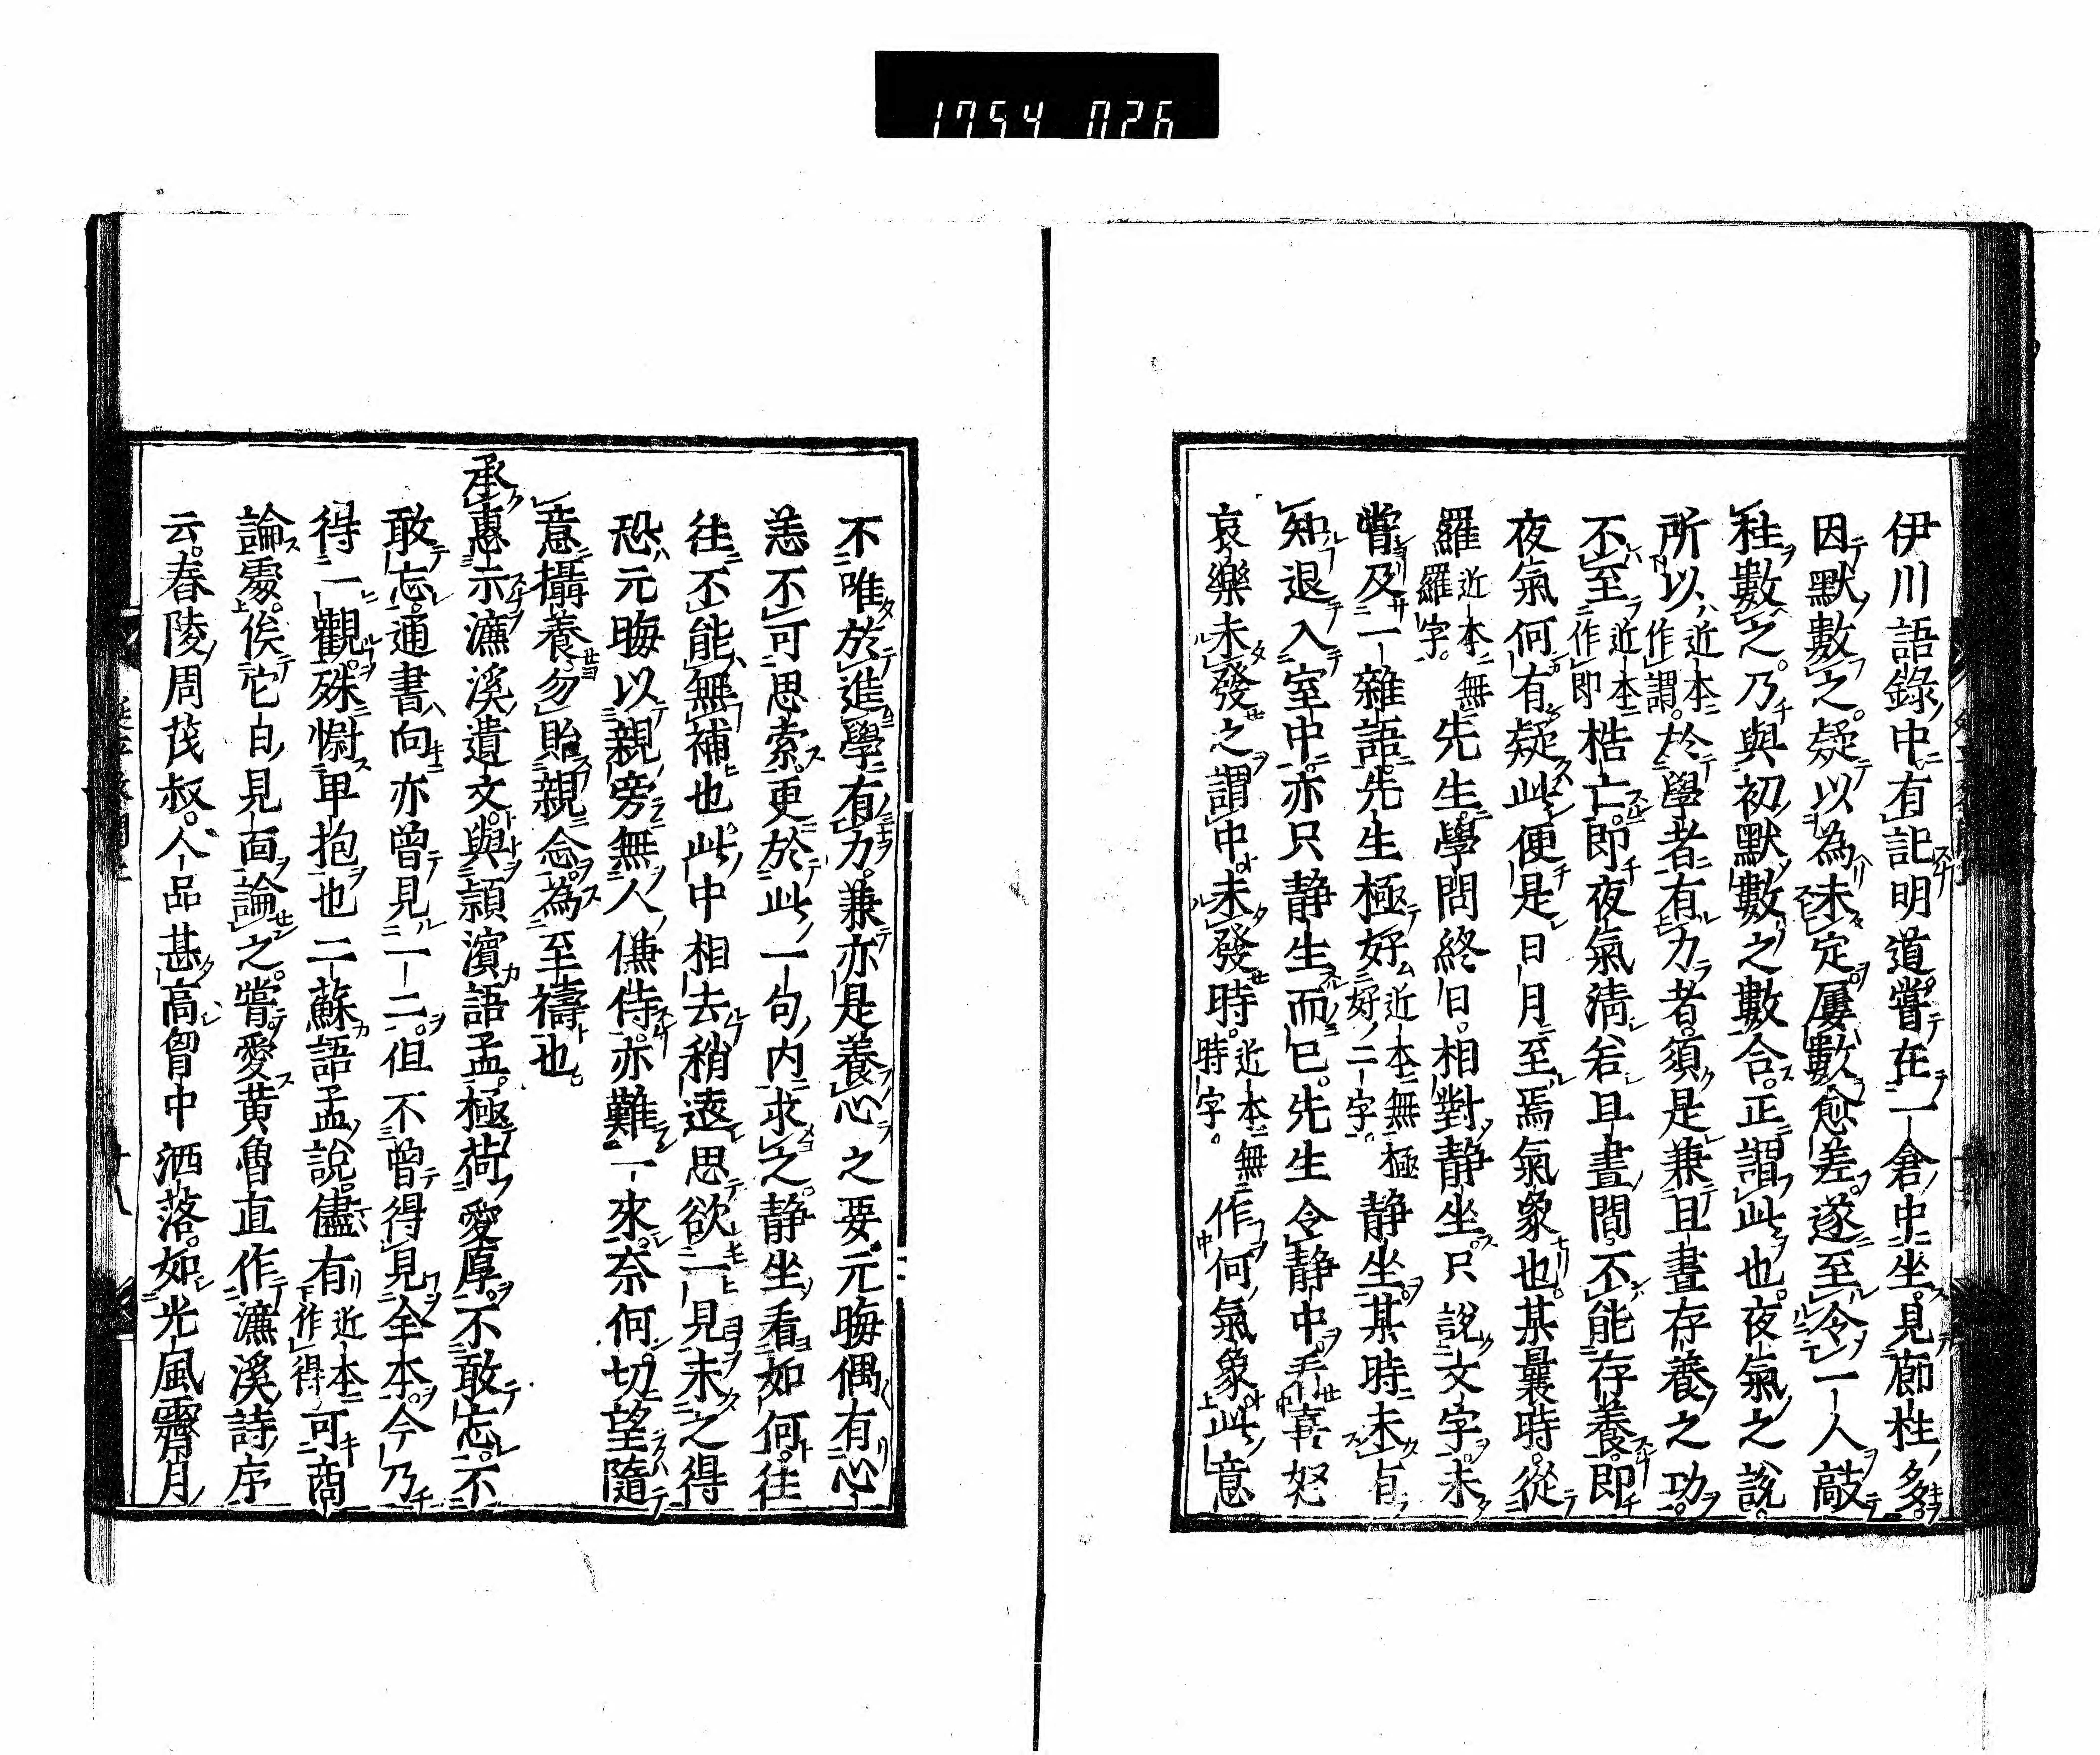 1754 026
伊川語錄中有記明道嘗在一倉中坐見廊柱多
因默數之疑以為未定屢數愈差遂至令一人敲
柱數之乃與初默數之數合正謂此也夜氣之說
所以近本作謂於學者有力者須是兼旦晝存養之功
不至近本作即梏亡即夜氣清若旦晝間不能存養即
夜氣何有疑此便是日月至焉氣象也某曩時從
羅近本無羅字先生學問終日相對靜坐只說文字未
嘗及一雜語先生極好近本無極好二字靜坐某時未有
知退入室中亦只靜坐而已先生令靜中看喜怒
哀樂未發之謂中未發時近本無時字作何氣象此意
不唯於進學有力兼亦是養心之要元晦偶有心
恙不可思索更於此一句內求之靜坐看如何往
往不能無補也此中相去稍遠思欲一見未之得
恐元晦以親旁無人傔侍亦難一來奈何切望隨
意攝養勿貽親念為至禱也
承惠示濂溪遺文與潁濱語孟極荷愛厚不敢忘不
敢忘通書向亦曾見一二但不曾得見全本今乃
得一觀殊慰卑抱也二蘇語孟說儘有近本作得可商
論處俟它日見面論之嘗愛黃魯直作濂溪詩序
云舂陵周茂叔人品甚高胷中洒落如光風霽月